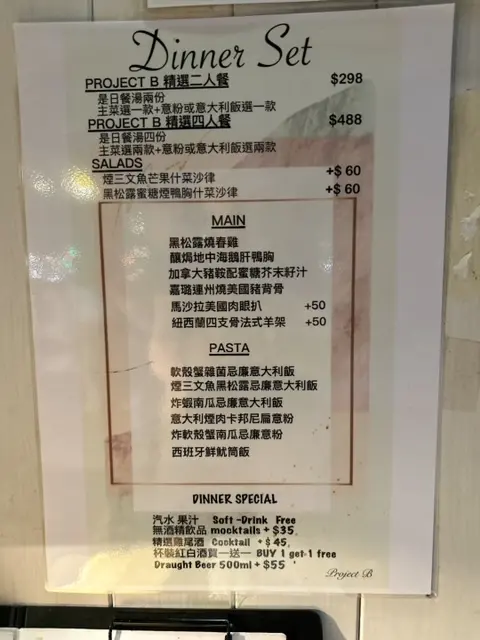 Dinner Set
PROJECT B 精選二人餐 $298
是日餐湯兩份
主菜選一款+意粉或意大利飯選一款
PROJECT B 精選四人餐 $488
是日餐湯四份
主菜選兩款+意粉或意大利飯選兩款
SALADS
煙三文魚芒果什菜沙律 +$ 60
黑松露蜜糖煙鴨胸什菜沙律 +$ 60
MAIN
黑松露燒春雞
釀焗地中海鵝肝鴨胸
加拿大豬鞍配蜜糖芥末籽汁
嘉璐連州燒美國豬背骨
馬沙拉美國肉眼扒 +50
紐西蘭四支骨法式羊架 +50
PASTA
軟殼蟹雜菌忌廉意大利飯
煙三文魚黑松露忌廉意大利飯
炸蝦南瓜忌廉意大利飯
意大利煙肉卡邦尼扁意粉
炸軟殼蟹南瓜忌廉意粉
西班牙鮮魷筒飯
DINNER SPECIAL
汽水 果汁 Soft-Drink Free
無酒精飲品 mocktails + $35
精選雞尾酒 Cocktail + $ 45
杯裝紅白酒買一送一 BUY 1 get 1 free
Draught Beer 500ml + $55
Project B